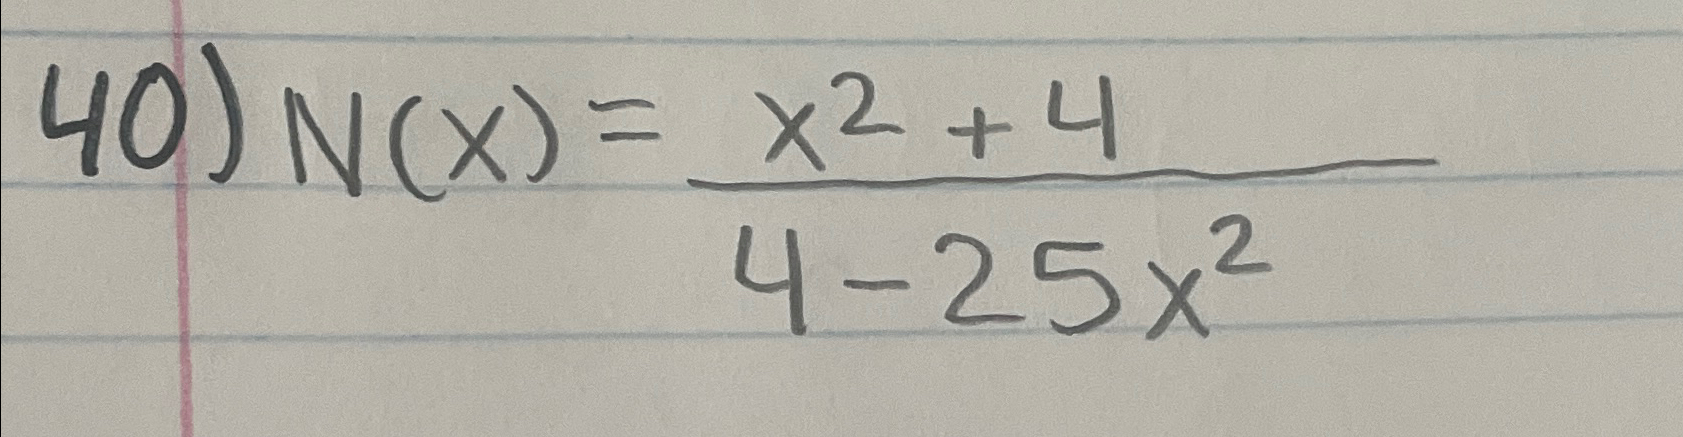 40) N(x) = x² + 4
4 - 25x²